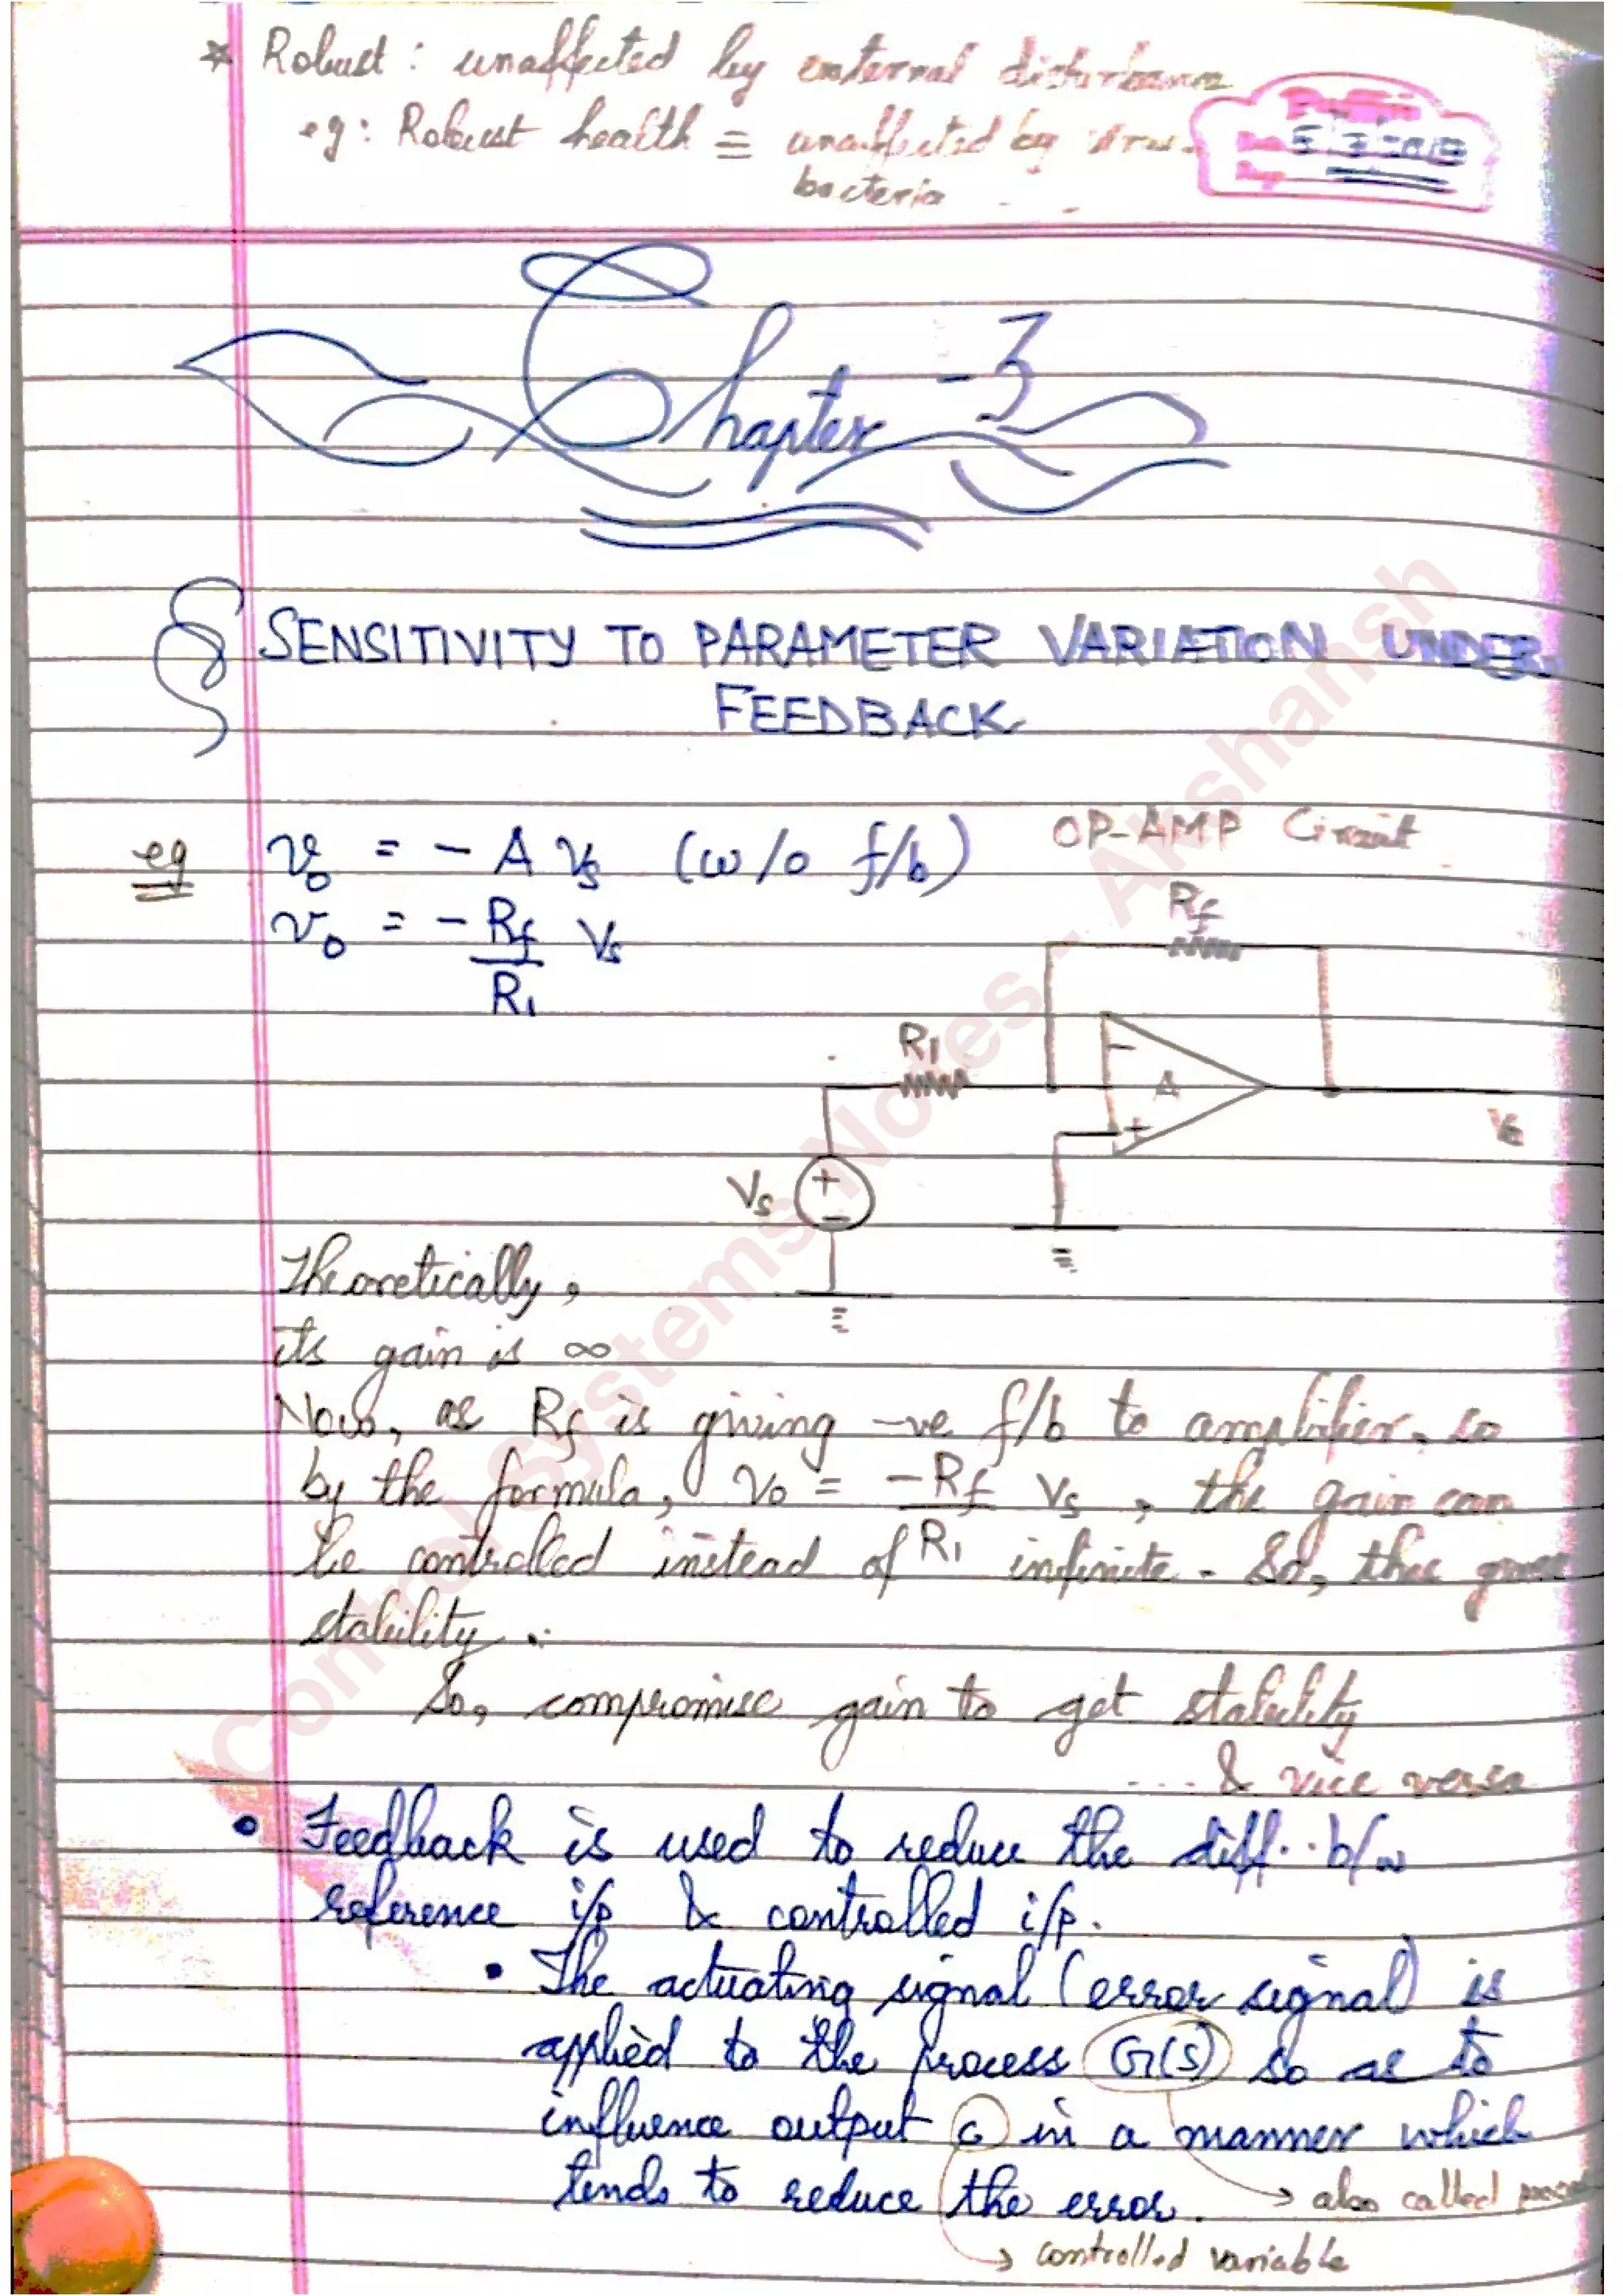 * Robust : unaffected by external disturbance
eg : Robust health ≡ unaffected by virus
bacteria
Chapter - 3
SENSITIVITY TO PARAMETER VARIATION UNDER
FEEDBACK
eg v₀ = - A Vs (w/o f/b)
OP-AMP Circuit
v₀ = - Rf / R1 Vs
Rf
R1
- A +
V₀
Vs + -
Theoretically,
its gain is ∞
Now, as Rf is giving -ve f/b to amplifier, so
by the formula, V₀ = -Rf / R1 Vs , the gain can
be controlled instead of infinite. So, this gives
stability.
So, compromise gain to get stability
.... & vice versa
• Feedback is used to reduce the diff. b/w
reference i/p & controlled i/p.
• The actuating signal (error signal) is
applied to the process G(s) so as to
influence output C in a manner which
tends to reduce the error.
→ also called
→ controlled variable
Control Systems Notes - Akshansh